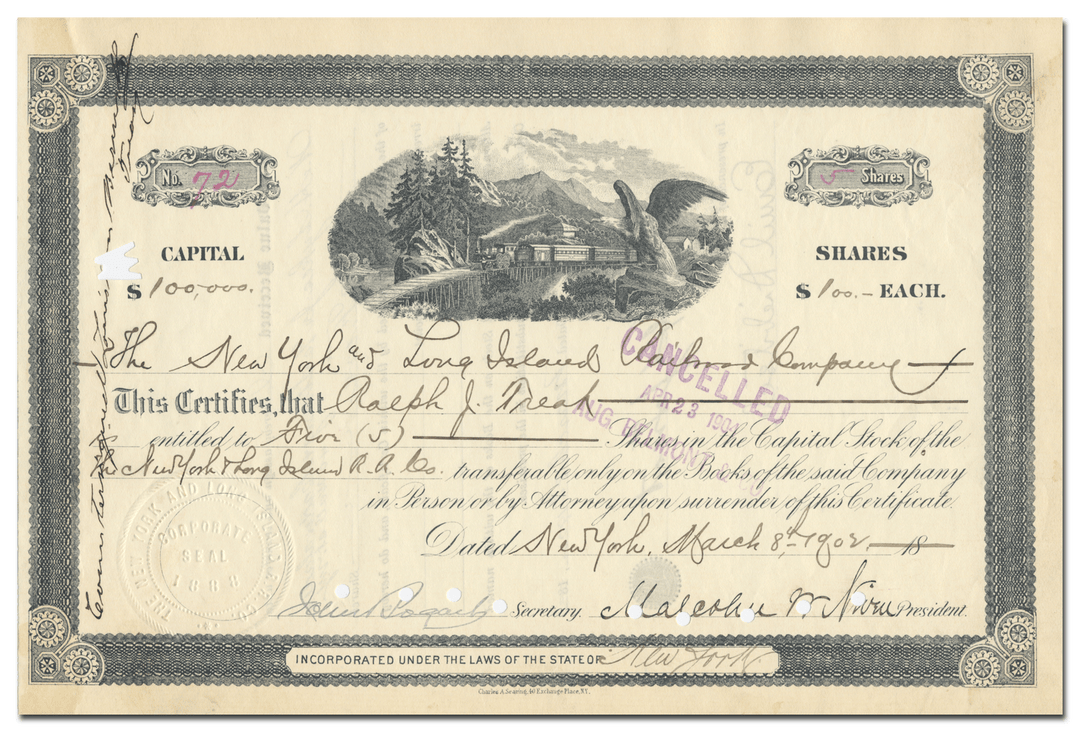 No. 72
5 Shares
CAPITAL
$ 100,000.
SHARES
$ 100.- EACH.
The New York and Long Island Railroad Company
This Certifies, that Ralph J. Treat
is entitled to Five (5) Shares in the Capital Stock of the
The New York & Long Island R.R. Co. transferable only on the Books of the said Company
in Person or by Attorney upon surrender of this Certificate.
Dated New York, March 8th 1902. 18
Secretary. Malcolm W. Niven President.
INCORPORATED UNDER THE LAWS OF THE STATE OF New York
Charles A. Searing, 40 Exchange Place, NY.
CANCELLED
APR 23 1904
AUG. BELMONT & CO
THE NEW YORK AND LONG ISLAND R.R. CO.
CORPORATE
SEAL
1888
Countersigned
Treas.
Value Received